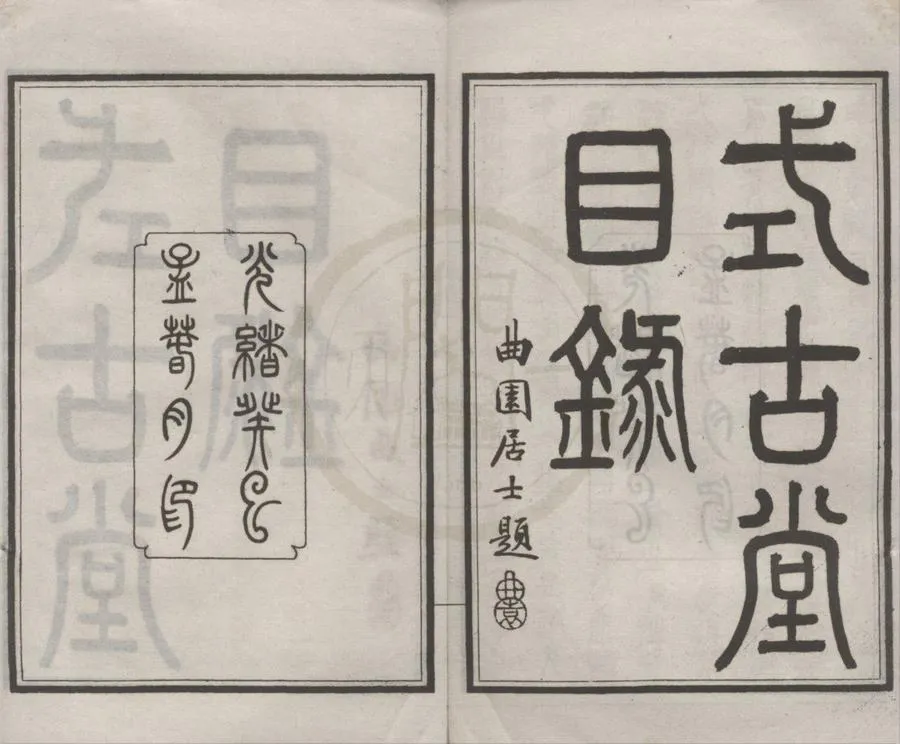 式古堂
目錄
曲園居士題
曲園
光緒癸巳
孟春月印